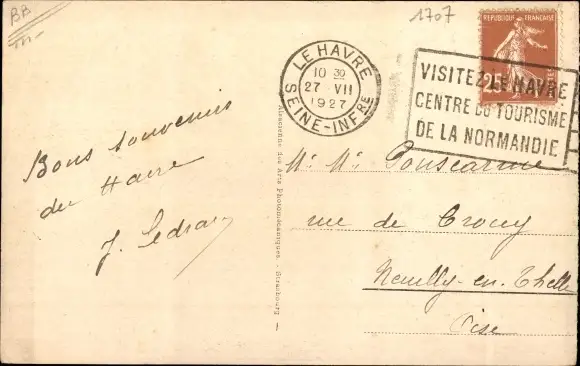 BB
1707
REPUBLIQUE FRANÇAISE
25
LE HAVRE
10 30
27 VII
1927
SEINE-INFRE
VISITEZ LE HAVRE
CENTRE DU TOURISME
DE LA NORMANDIE
Bons souvenirs
du Havre
J.
Alsacienne des Arts Photomécaniques. - Strasbourg
Mr Me Ponscarme
rue de Crouy
Neuilly-en-Thelle
Oise